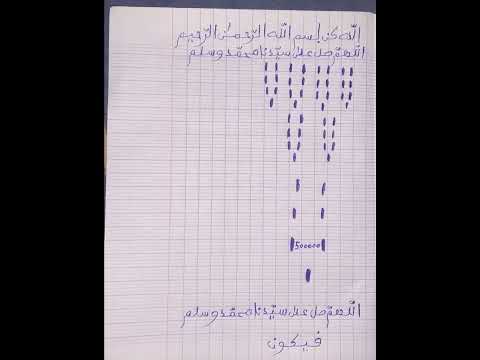 اللّه كن بسم اللّه الرّحمن الرّحيم
اللّهمّ صل على سيّدنا محمّد وسلم
500000
اللّهمّ صل على سيّدنا محمّد وسلم
فيكون